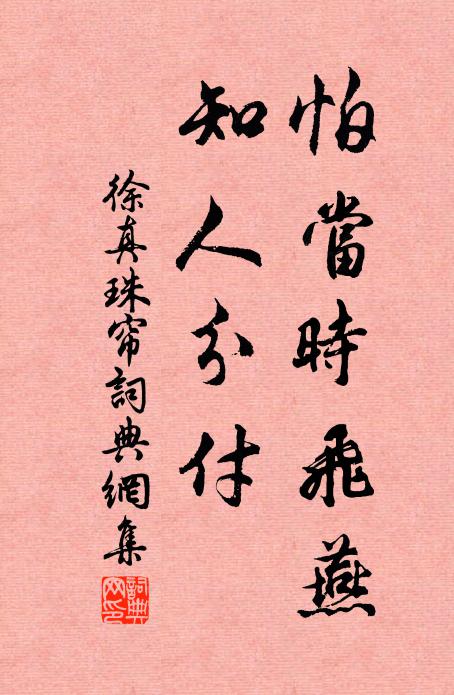 怕當時飛燕
知人分付
徐真珠帘詞典網集
詞典網印